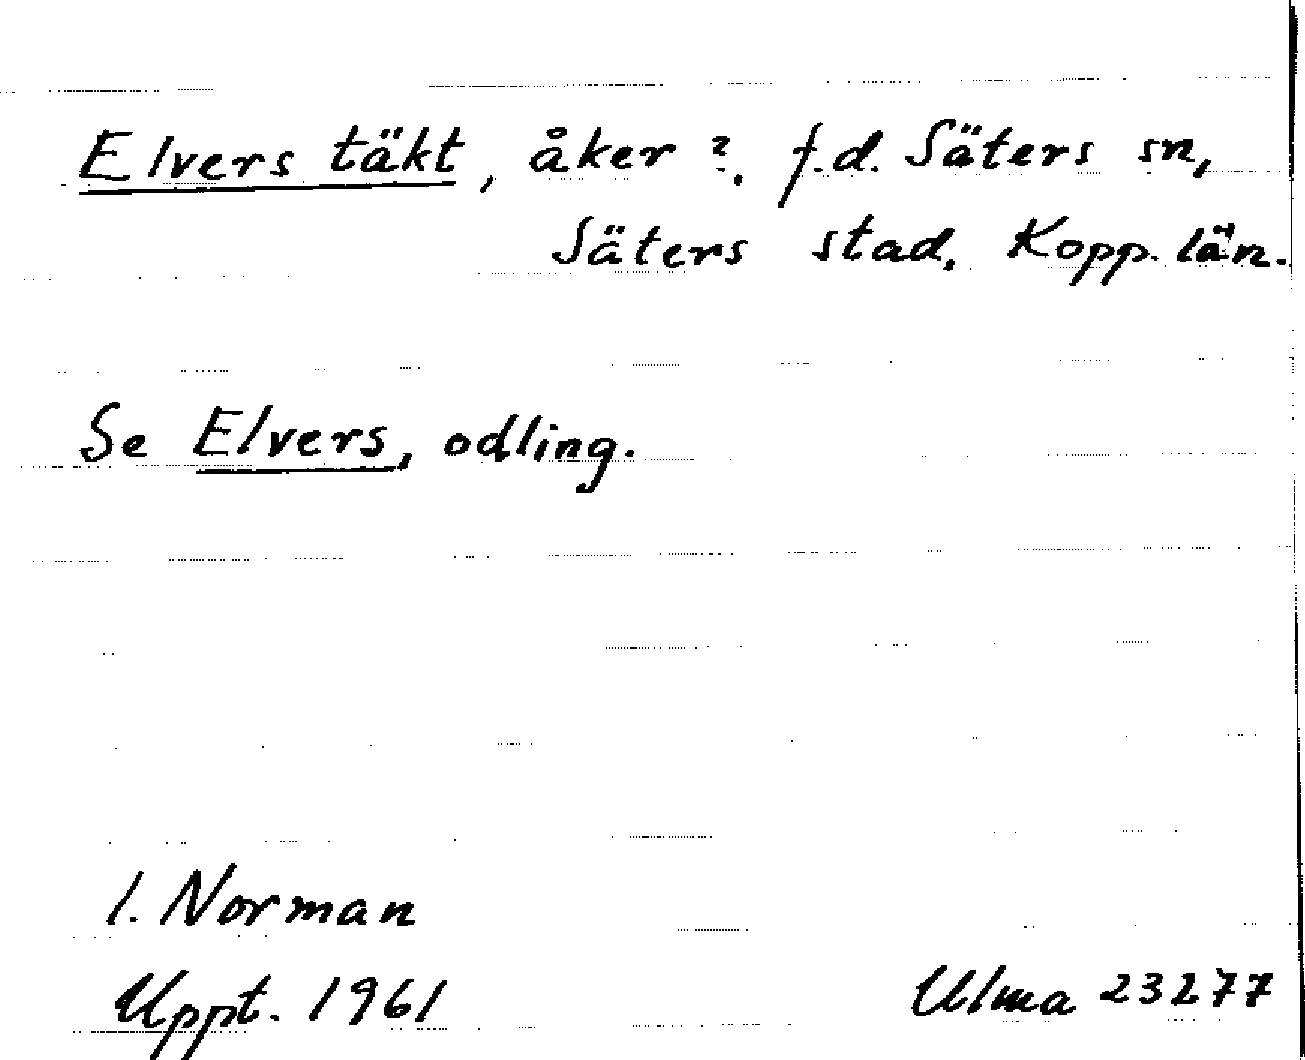 Elvers täkt, åker?. f.d. Säters sn,
Säters stad. Kopp. län.
Se Elvers, odling.
I. Norman
Uppt. 1961
Ulma 23277